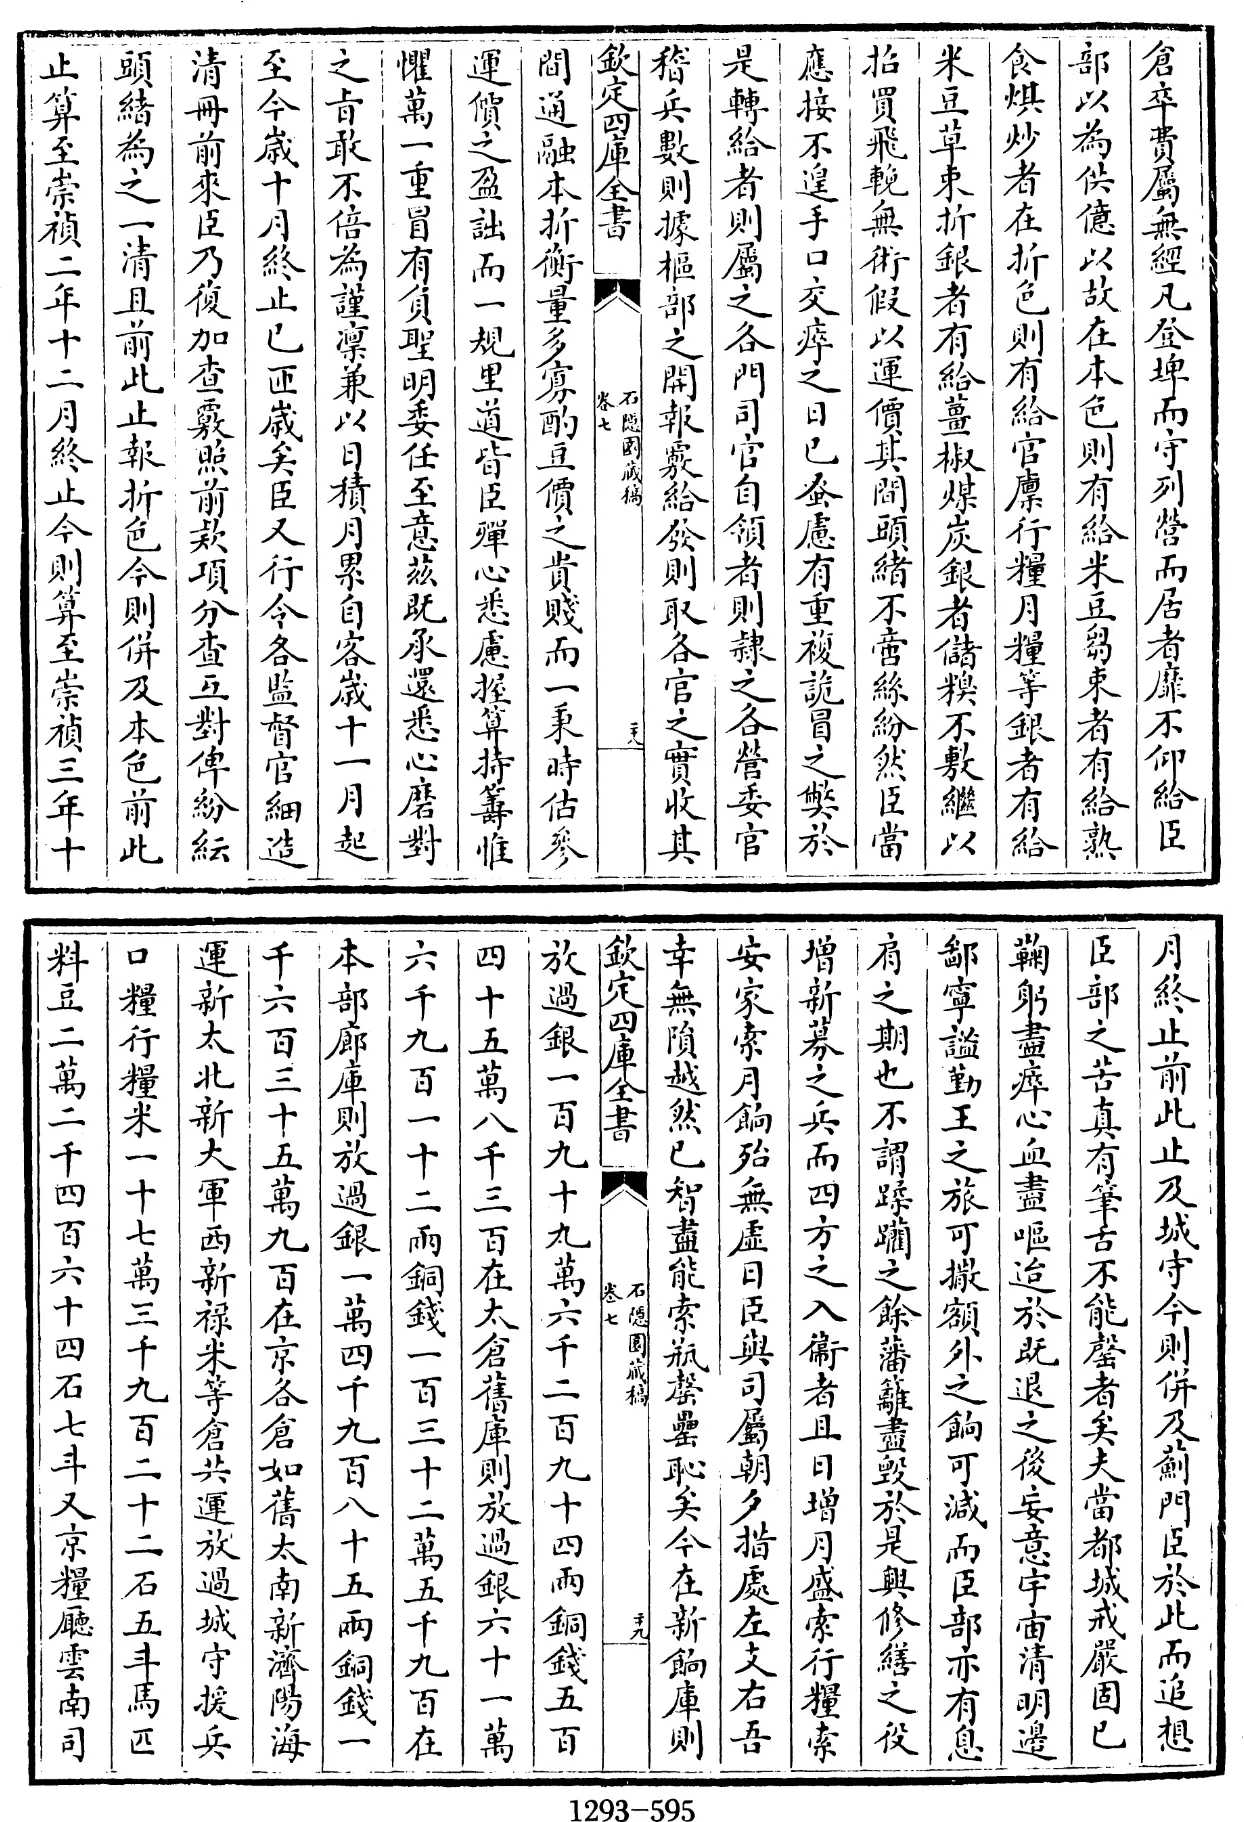 倉卒費屬無經凡登埤而守列營而居者靡不仰給臣
部以為供億以故在本色則有給米豆芻束者有給熟
食烘炒者在折色則有給官廪行糧月糧等銀者有給
米豆草束折銀者有給薑椒煤炭銀者儲糗不敷繼以
招買飛輓無術假以運價其間頭緒不啻絲紛然臣當
應接不遑手口交瘁之日已蚤慮有重複詭冒之弊於
是轉給者則屬之各門司官自領者則隸之各營委官
稽兵數則據樞部之開報覈給發則取各官之實收其
欽定四庫全書
石隱園藏稿
卷七
二十八
間通融本折衡量多寡酌豆價之貴賤而一秉時估參
運價之盈詘而一規里道皆臣殫心悉慮握算持籌惟
懼萬一重冒有負聖明委任至意茲既承還悉心磨對
之旨敢不倍為謹凛兼以日積月累自客歲十一月起
至今歲十月終止已匝歲矣臣又行令各監督官細造
清冊前來臣乃復加查覈照前款項分查互對俾紛紜
頭緒為之一清且前此止報折色今則併及本色前此
止算至崇禎二年十二月終止今則算至崇禎三年十
月終止前此止及城守今則併及薊門臣於此而追想
臣部之苦真有筆舌不能罄者矣夫當都城戒嚴固已
鞠躬盡瘁心血盡嘔迨於既退之後妄意宇宙清明邊
鄙寧謐勤王之旅可撤額外之餉可減而臣部亦有息
肩之期也不謂蹂躪之餘藩籬盡毀於是興修繕之役
增新募之兵而四方之入衞者且日增月盛索行糧索
安家索月餉殆無虛日臣與司屬朝夕措處左支右吾
幸無隕越然已智盡能索瓶罄罍恥矣今在新餉庫則
欽定四庫全書
石隱園藏稿
卷七
二十九
放過銀一百九十九萬六千二百九十四兩銅錢五百
四十五萬八千三百在太倉舊庫則放過銀六十一萬
六千九百一十二兩銅錢一百三十二萬五千九百在
本部廊庫則放過銀一萬四千九百八十五兩銅錢一
千六百三十五萬九百在京各倉如舊太南新濟陽海
運新太北新大軍西新祿米等倉共運放過城守援兵
口糧行糧米一十七萬三千九百二十二石五斗馬匹
料豆二萬二千四百六十四石七斗又京糧廳雲南司
1293-595